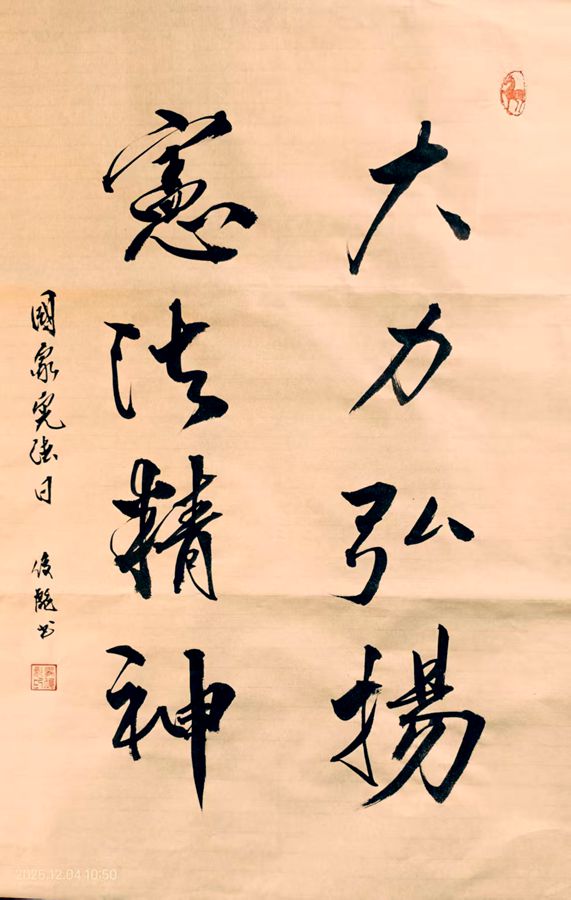 大力弘揚
憲法精神
國家憲法日
俊龍书
2025.12.04 10:50